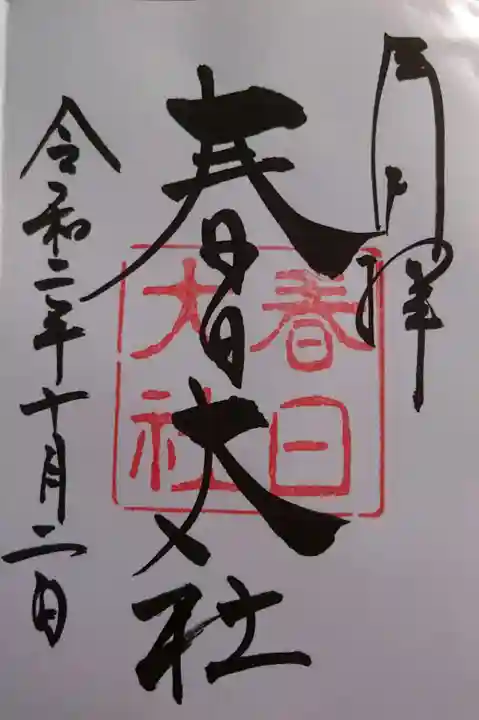 奉拝
春日大社
春日
大社
令和二年十月二日